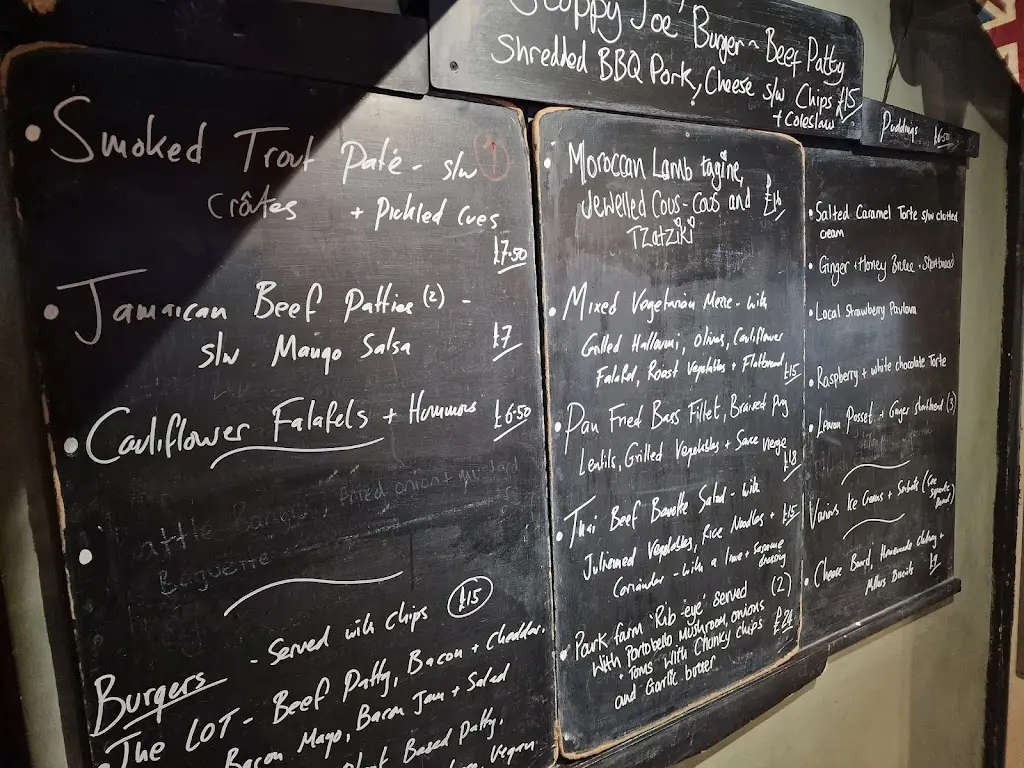 Sloppy Joe' Burger ~ Beef Patty
Shredded BBQ Pork, Cheese s/w Chips £15
+ Coleslaw
• Smoked Trout Paté - s/w 1
crôutes + Pickled Cues
£7.50
• Jamaican Beef Patties (2) -
s/w Mango Salsa £7
• Cauliflower Falafels + Hommous £6.50
fried onion + mustard
Baguette
Burgers - Served with chips £15
• The LOT - Beef Patty, Bacon + cheddar.
Bacon Mayo, Bacon Jam + Salad
Plant Based Patty.
Vegan
• Moroccan Lamb tagine,
Jewelled Cous-Cous and £16
Tzatziki
• Mixed Vegetarian Meze - with
Grilled Halloumi, Olives, Cauliflower
Falafel, Roast Vegetables + Flatbread £15
• Pan Fried Bass Fillet, Braised Puy
Lentils, Grilled Vegetables + Sauce vierge
£18
• Thai Beef Bavette Salad - with
Julienned Vegetables, Rice Noodles + £15
Coriander - with a lime + sesame
dressing
• Park farm 'Rib-eye' served (2)
with Portobello Mushroom, onions £24
+ Toms with Chunky chips
and Garlic butter
Puddings £6.50
• Salted Caramel Torte s/w clotted
cream
• Ginger + Honey Brulee + Shortbread
• Local Strawberry Pavlova
• Raspberry + white chocolate Torte
• Lemon Posset + Ginger shortbread (3)
Various Ice Creams + Sorbets (See
separate
board)
• Cheese Board, Homemade chutney +
Millers Biscuits £9